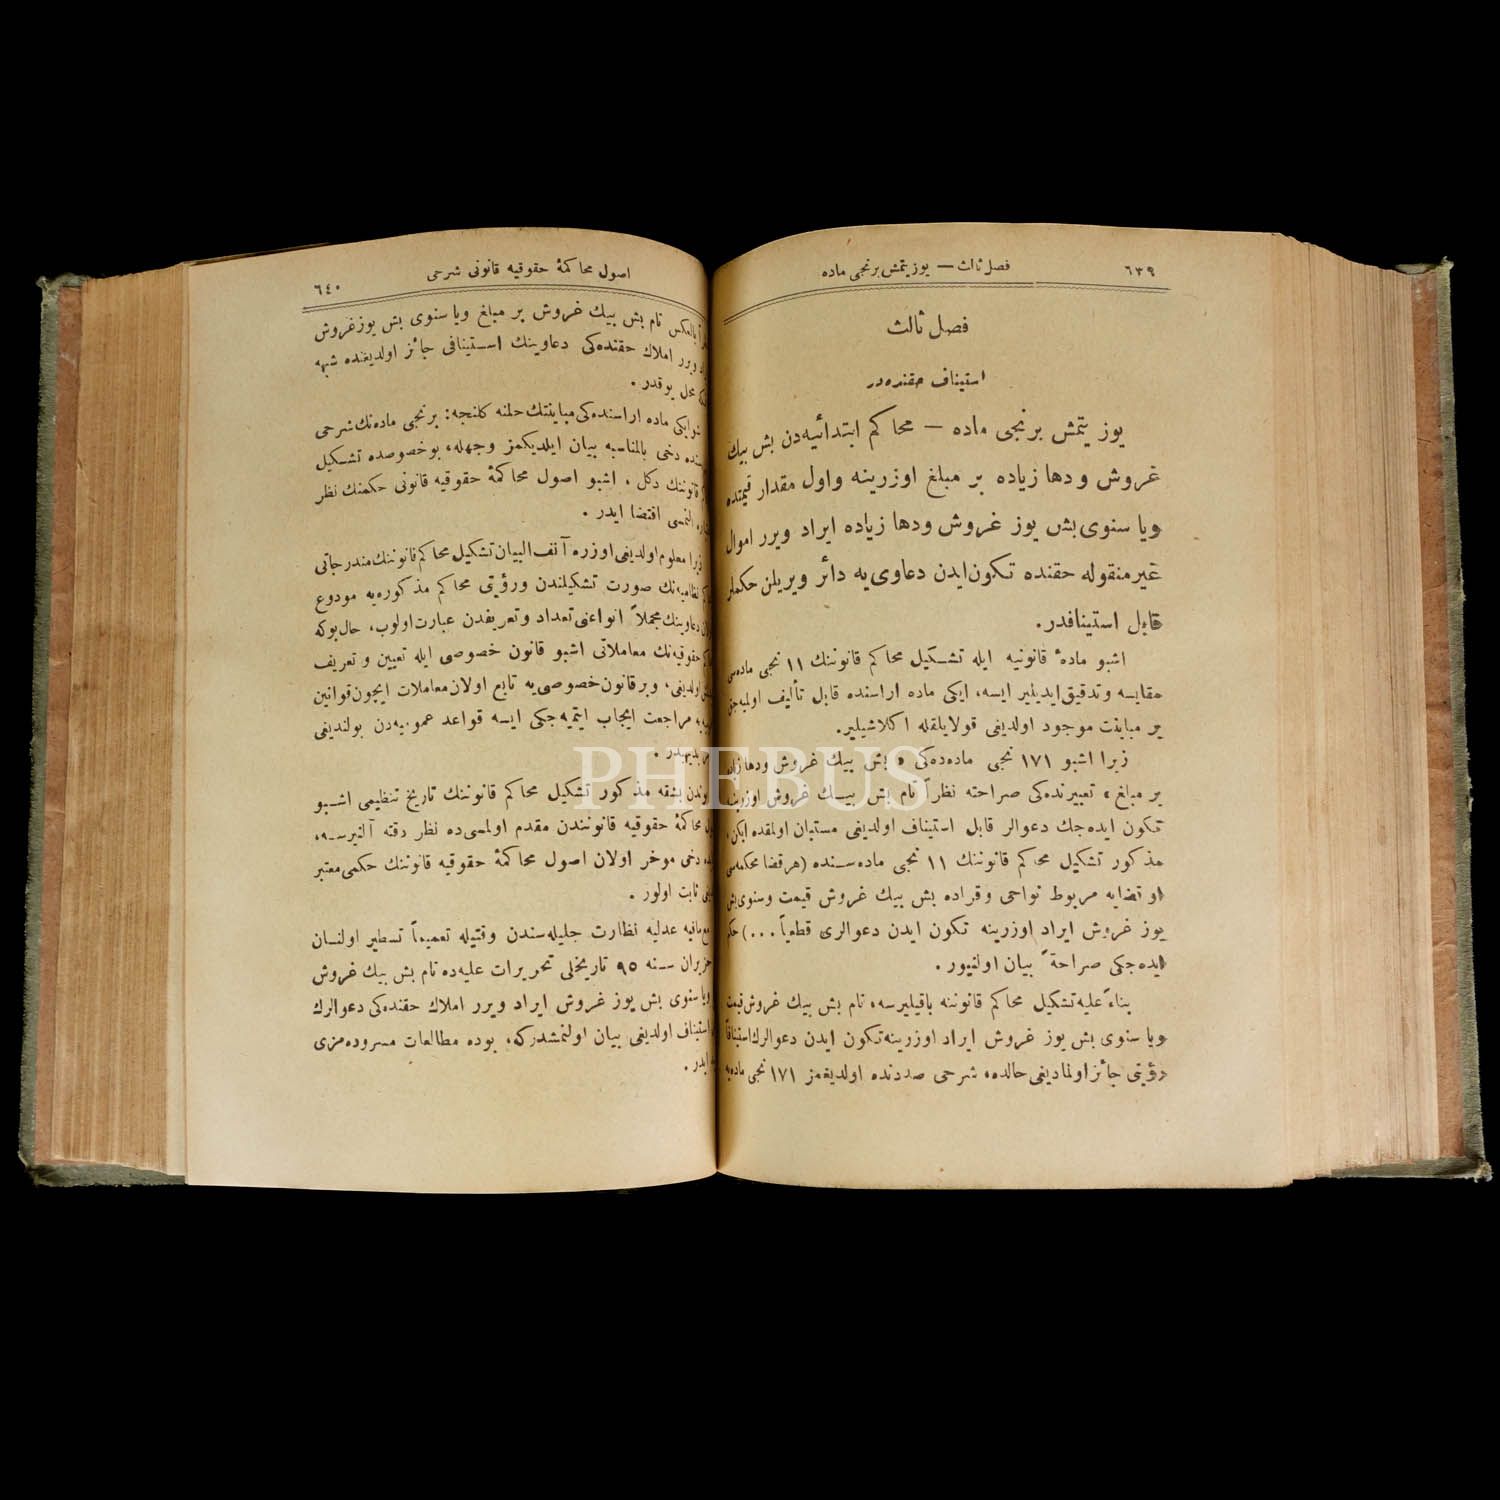 ٦٣٩
فصل ثالث — یوز یتمش برنجی ماده
فصل ثالث
استیناف حقنده‌در
یوز یتمش برنجی ماده — محاكم ابتدائیه‌دن بش بیك
غروش ودها زیاده بر مبلغ اوزرینه واول مقدار قیمتده
ویا سنوی بش یوز غروش ودها زیاده ایراد ویرر اموال
غیر منقوله حقنده تكون ایدن دعاوی‌یه دائر ویریلن حكملر
قابل استینافدر.
اشبو مادهٔ قانونیه ایله تشكیل محاكم قانوننك ١١ نجی ماده‌سی
مقایسه وتدقیق ایدیلیر ایسه، ایكی ماده اراسنده قابل تألیف اولمیه‌جق
بر مباینت موجود اولدیغی قولایلقله اكلاشیلیر.
زیرا اشبو ١٧١ نجی ماده‌ده‌كی « بش بیك غروش ودها زیاده
بر مبلغ » تعبیرنده‌كی صراحته نظراً تام بش بیك غروش اوزرینه
تكون ایده‌جك دعوالر قابل استیناف اولدیغی مستبان اولمقده ایكن،
مذكور تشكیل محاكم قانوننك ١١ نجی ماده‌سنده (هر قضا محكمه‌سی
او قضایه مربوط نواحی وقراده بش بیك غروش قیمت وسنوی بش
یوز غروش ایراد اوزرینه تكون ایدن دعوالری قطعیاً ...) حكم
ایده‌جكی صراحةً بیان اولنیور.
بناءً علیه تشكیل محاكم قانوننه باقیلیرسه، تام بش بیك غروش قیمت
ویا سنوی بش یوز غروش ایراد اوزرینه تكون ایدن دعوالرك استینافاً
رؤیتی جائز اولمادیغی حالده، شرحی صددنده اولدیغمز ١٧١ نجی ماده‌یه
اصول محاكمهٔ حقوقیه قانونی شرحی
٦٤٠
بالعكس تام بش بیك غروش بر مبلغ ویا سنوی بش یوز غروش
ویرر املاك حقنده‌كی دعاوینك استینافی جائز اولدیغنده شبهه
محل یوقدر.
شو ایكی ماده اراسنده‌كی مباینتك حلنه كلنجه: برنجی ماده‌نك شرحی
دخی بالمناسبه بیان ایلدیكمز وجهله، بو خصوصده تشكیل
قانوننك دكل، اشبو اصول محاكمهٔ حقوقیه قانونی حكمنك نظر
آلنمسی اقتضا ایدر.
زیرا معلوم اولدیغی اوزره آنف البیان تشكیل محاكم قانوننك مندرجاتی
نظامیه‌نك صورت تشكیلندن ورؤیتی محاكم مذكوره‌یه مودوع
دعاوینك مجملاً انواعنی تعداد وتعریفدن عبارت اولوب، حال بوكه
حقوقیه‌نك معاملاتی اشبو قانون خصوصی ایله تعیین و تعریف
اولدیغی، وبر قانون خصوصی‌یه تابع اولان معاملات ایچون قوانین
مراجعت ایجاب ایتمیه‌جكی ایسه قواعد عمومیه‌دن بولندیغی
بدیهیدر.
بوندن بشقه مذكور تشكیل محاكم قانوننك تاریخ تنظیمی اشبو
محاكمهٔ حقوقیه قانونندن مقدم اولمسی‌ده نظر دقته آلنیرسه،
دخی موخر اولان اصول محاكمهٔ حقوقیه قانوننك حكمی معتبر
ثابت اولور.
مع مافیه عدلیه نظارت جلیله‌سندن وقتیله تعمیماً تسطیر اولنان
حزیران سنه ٩٥ تاریخلی تحریرات علیه‌ده تام بش بیك غروش
ویا سنوی بش یوز غروش ایراد ویرر املاك حقنده‌كی دعوالرك
استیناف اولدیغی بیان اولنمشدركه، بوده مطالعات مسروده‌مزی
ایدر.
PHEBUS